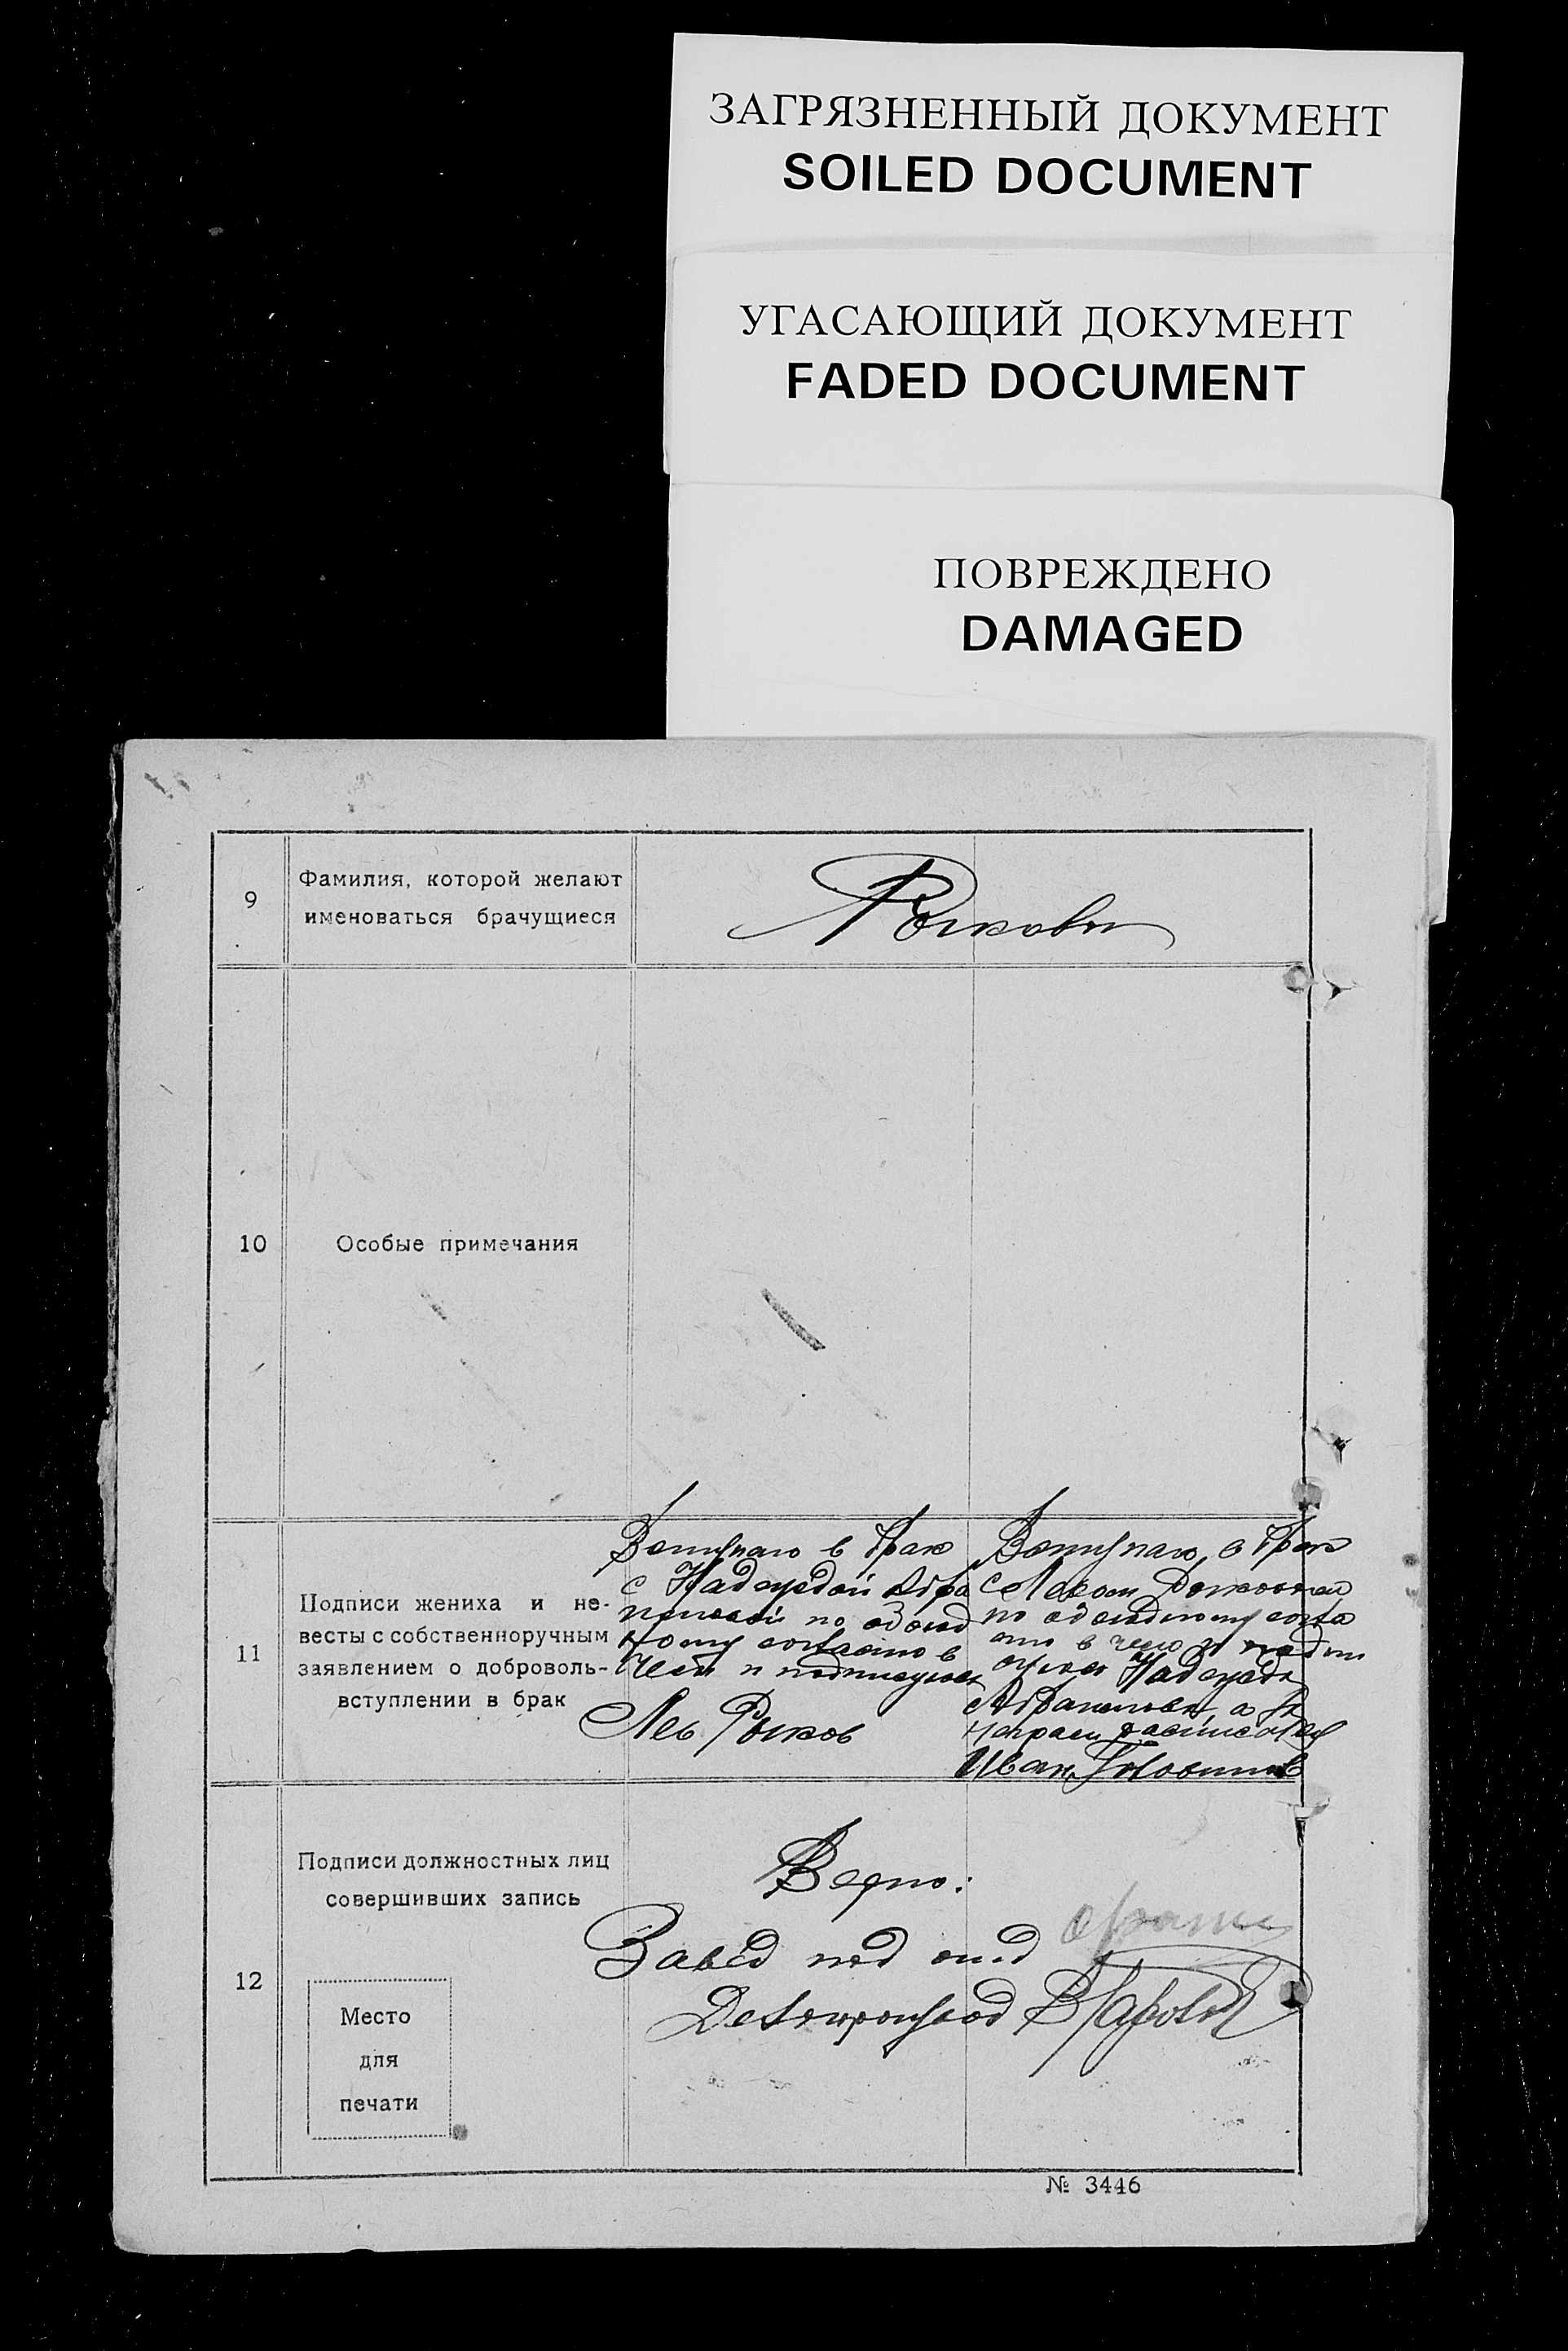 ЗАГРЯЗНЕННЫЙ ДОКУМЕНТ
SOILED DOCUMENT
УГАСАЮЩИЙ ДОКУМЕНТ
FADED DOCUMENT
ПОВРЕЖДЕНО
DAMAGED
9
Фамилия, которой желают
именоваться брачущиеся
Рыковы
10
Особые примечания
11
Подписи жениха и не-
весты с собственноручным
заявлением о доброволь-
вступлении в брак
Вступаю в брак
с Надеждой
по обоюд
ному согласию в
чем и подписуюсь
Лев Рыков
Вступаю в брак
с Львом Рыковым
по обоюдному согла
в чем и
Надежда
Абрамова, а за
Иван
12
Подписи должностных лиц
совершивших запись
Место
для
печати
Верно:
Завед под отд
№ 3446